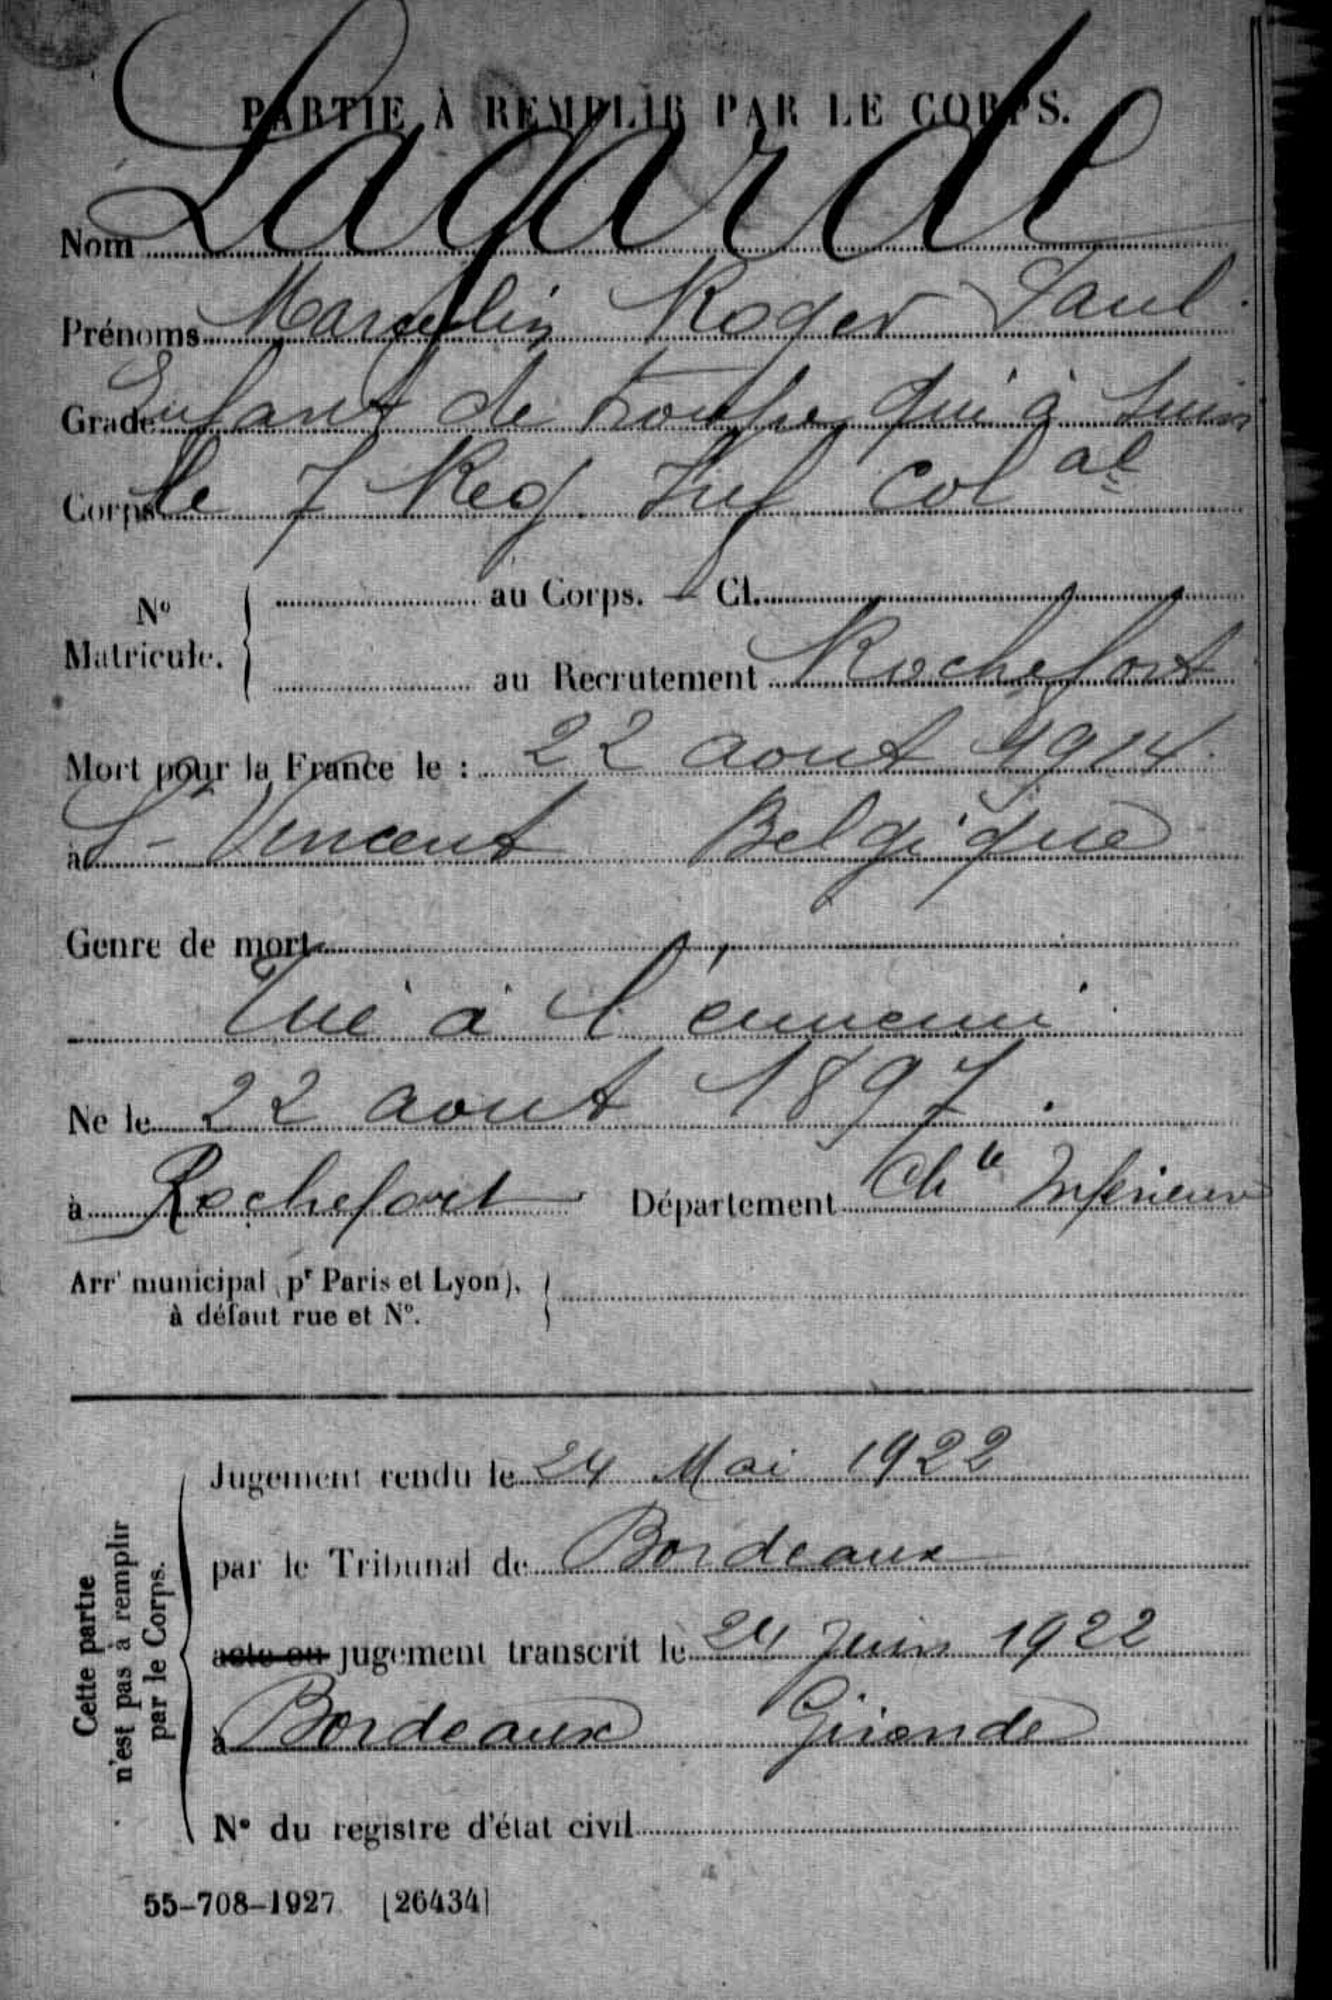 PARTIE À REMPLIR PAR LE CORPS.
Nom Lagarde
Prénoms Marcelin Roger Paul
Grade Enfant de troupe qui à suivi
Corps le 7 Reg. Inf Col al
No Matricule. { au Corps. — Cl.
au Recrutement Rochefort
Mort pour la France le : 22 aout 1914
à St Vincent Belgique
Genre de mort
Tué à l'ennemi
Né le 22 aout 1897.
à Rochefort Département Chte Inférieure
Arrt municipal (pr Paris et Lyon), à défaut rue et No. {
Cette partie n'est pas à remplir par le Corps.
Jugement rendu le 24 Mai 1922
par le Tribunal de Bordeaux
acte ou jugement transcrit le 24 Juin 1922
à Bordeaux Gironde
No du registre d'état civil
55-708-1927. [26434]